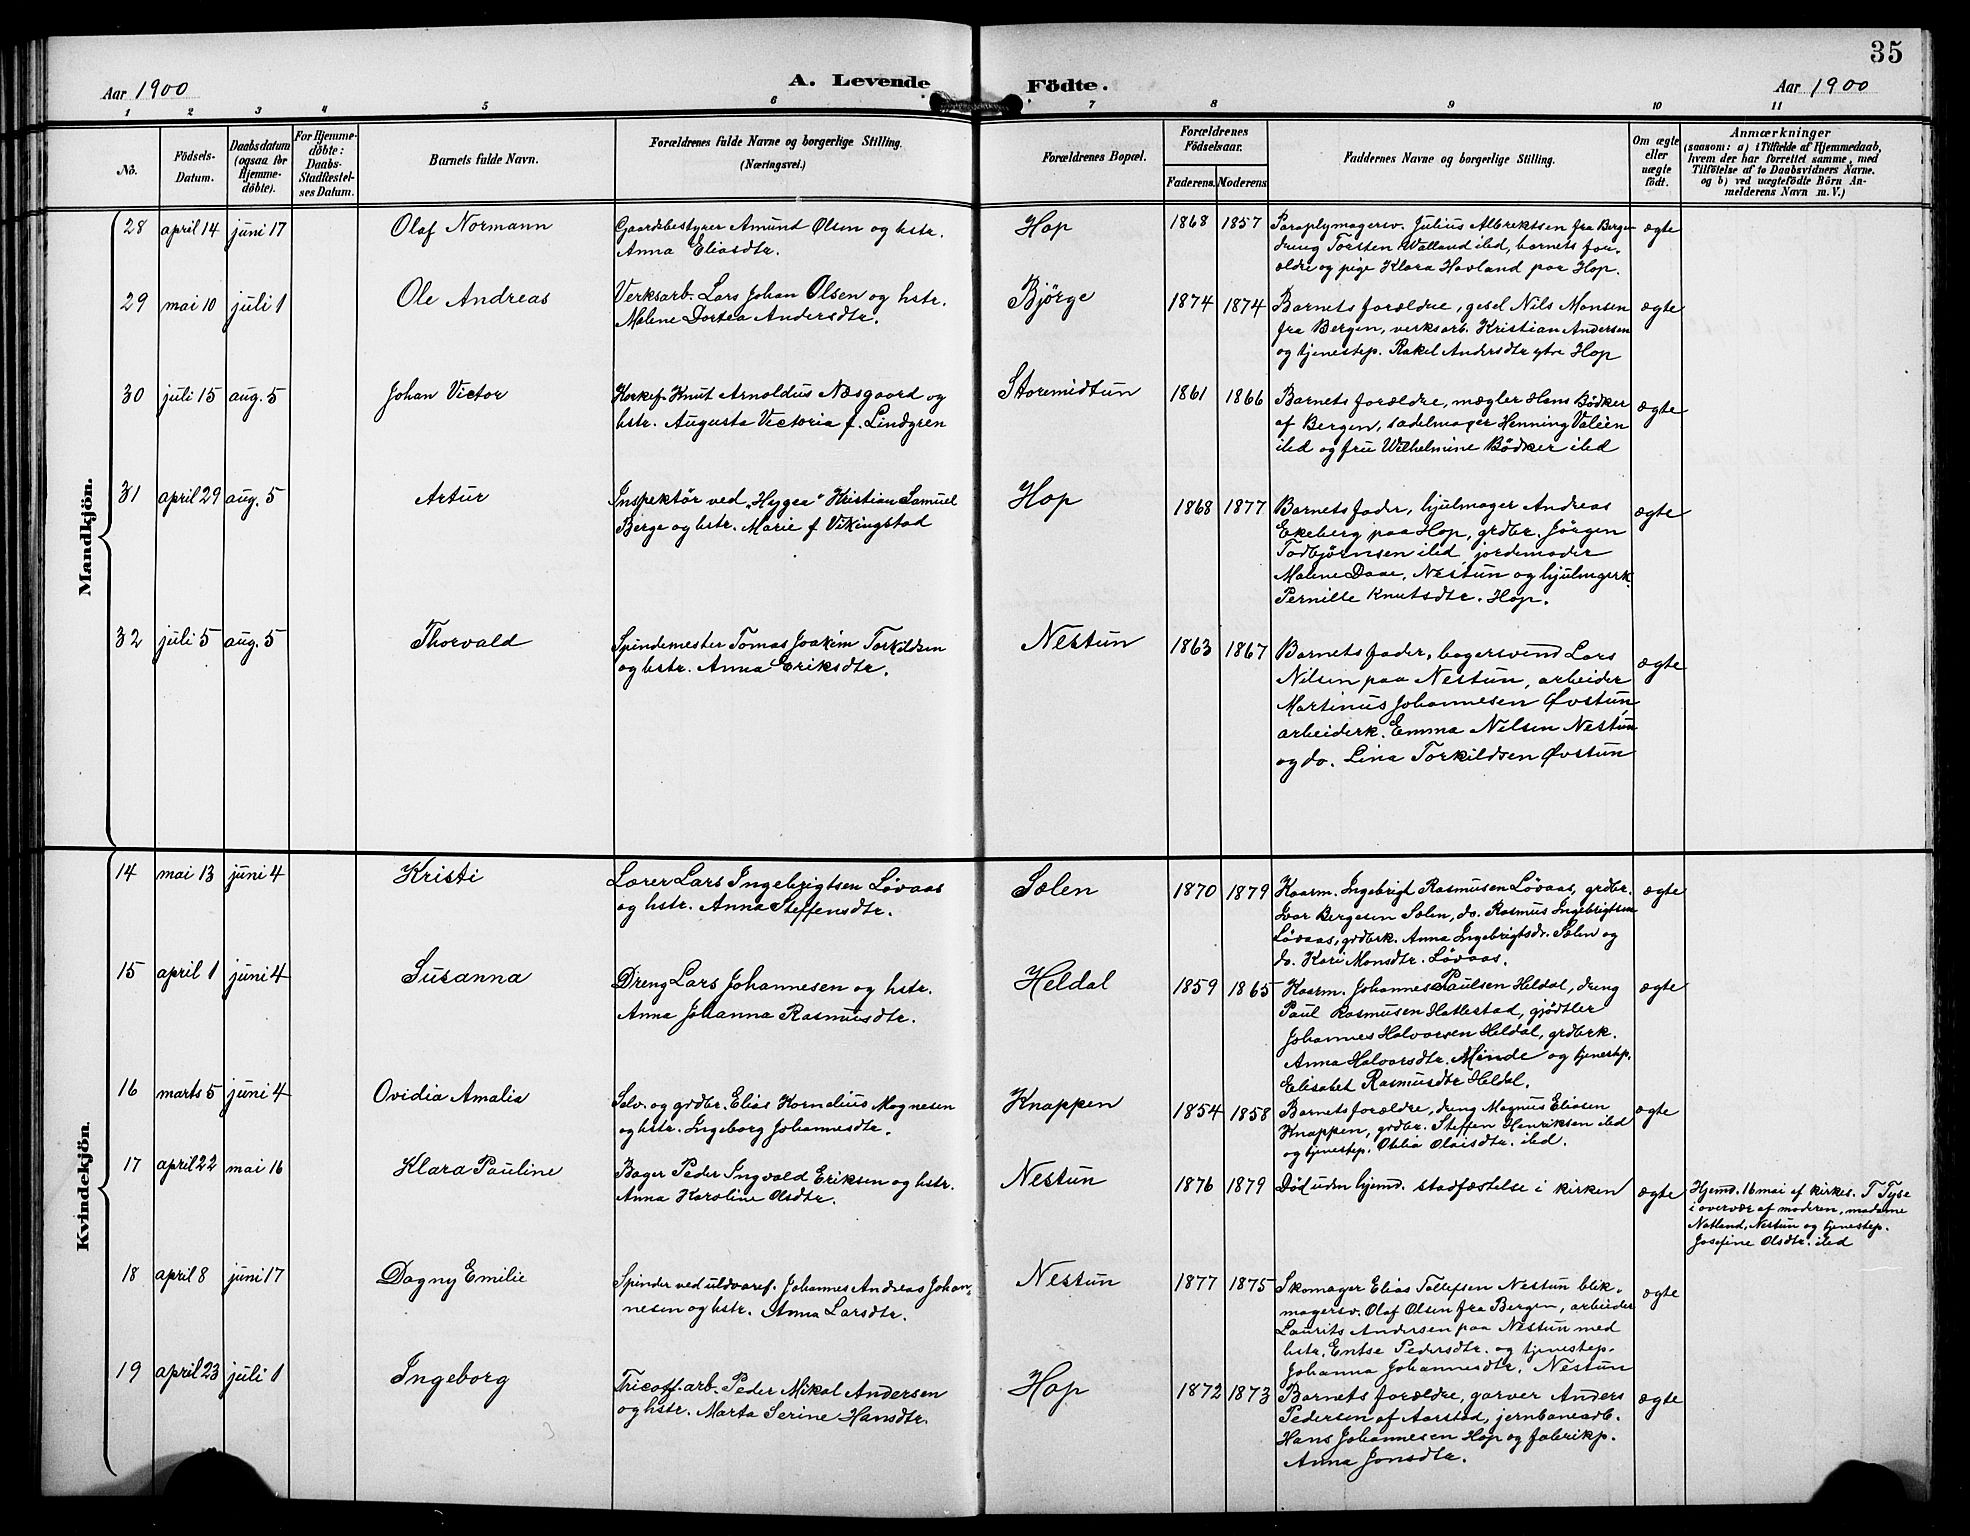 35
Aar 1900
A. Levende Födte.
Aar 1900
1 2 3 4 5 6 7 8 9 10 11
No.
Födsels-Datum.
Daabsdatum (ogsaa for Hjemme-döbte).
For Hjemme-döbte: Daabs-Stadfæstel-ses Datum.
Barnets fulde Navn.
Forældrenes fulde Navne og borgerlige Stilling.
(Næringsvei.)
Forældrenes Bopæl.
Forældrenes Födselsaar.
Faderens. Moderens.
Faddernes Navne og borgerlige Stilling.
Om ægte eller uægte födt.
Anmærkninger
(saasom: a) i Tilfælde af Hjemmedaab,
hvem der har forrettet samme, med
Tilföielse af to Daabsvidners Navne.
og b) ved uægtefödte Börn An-
melderens Navn m. V.)
Mandkjön.
28 april 14 juni 17 Olaf Normann
Gaardsbestyrer Amund Olsen og hstr.
Anna Eliasdtr.
Hop 1868 1857
Paraplymagersv. Julius Albrektsen fra Bergen
dreng Torsten Valland ibd, barnets for-
ældre og pige Klara Havland paa Hop.
ægte
29 mai 10 juli 1 Ole Andreas
Verksarb. Lars Johan Olsen og hstr.
Malene Dortea Andersdtr.
Bjørge 1874 1874
Barnets forældre, gesel Nils Monsen
fra Bergen, verksarb. Kristian Andersen
og tjenestep. Rakel Andersdtr ytre Hop
ægte
30 juli 15 aug. 5 Johan Victor
Korkef. Knut Arnoldus Næsgaard og
hstr. Augusta Victoria f. Lindgren
Storemidtun 1861 1866
Barnets forældre, mægler Hans Bödker
af Bergen, sadelmager Henning Valéen
ibd og fru Wilhelmine Bödker ibd
ægte
31 april 29 aug. 5 Artur
Inspektør ved „Hygea" Kristian Samuel
Berge og hstr. Marie f Vikingstad
Hop 1868 1877
Barnets fader, hjulmager Andreas
Ekeberg paa Hop, grdbr. Jørgen
Todbjørnsen ibd jordemoder
Malene Daae, Nestun og hjulmgerk.
Pernille Knutsdtr. Hop.
ægte
32 juli 5 aug. 5 Thorvald
Spindemester Tomas Joakim Torkildsen
og hstr. Anna Eriksdtr.
Nestun 1863 1867
Barnets fader, bagersvend Lars
Nilsen paa Nestun, arbeider
Martinus Johannesen Øvstun,
arbeiderk. Emma Nelsen Nestun
og do. Lina Torkildsen Øvstun
ægte
Kvindekjön.
14 mai 13 juni 4 Kristi
Lærer Lars Ingebrigtsen Løvaas
og hstr. Anna Steffensdtr.
Sælen 1870 1879
Kaarm. Ingebrigt Rasmusen Løvaas, grdbr.
Ivar Bergesen Sælen, do. Rasmus Ingebrigtsen
Løvaas, grdbrk. Anna Ingebrigtsdr. Sælen og
do. Kari Monsdtr. Løvaas.
ægte
15 april 1 juni 4 Susanna
Dreng Lars Johannesen og hstr.
Anna Johanna Rasmusdtr.
Heldal 1859 1865
Kaarm. Johannes Paulsen Heldal, dreng
Paul Rasmusen Hatlestad, gjødtler
Johannes Halvorsen Heldal, grdbrk.
Anna Halvorsdtr. Minde og tjenestep.
Elisabet Rasmusdtr Heldal.
ægte
16 marts 5 juni 4 Ovidia Amalia
Selv. og grdbr. Elias Kornelius Magnesen
og hstr. Ingeborg Johannesdtr.
Knappen 1854 1858
Barnets forældre, dreng Magnus Eliasen
Knappen, grdbr. Steffen Henriksen ibd
og tjenestep. Otelia Olaisdtr. ibd.
ægte
17 april 22 mai 16 Klara Pauline
Bager Peder Ingvald Eriksen og hstr.
Anna Karoline Olsdtr.
Nestun 1876 1879
Död uden hjemd. stadfæstelse i kirken
ægte
Hjemd. 16 mai af kirkes. T Tyse
i overvær af moderen, madame
Natland, Nestun og tjenestep.
Josefine Olsdtr. ibd
18 april 8 juni 17 Dagny Emilie
Spinder ved uldvaref. Johannes Andreas Johan-
nesen og hstr. Anna Larsdtr.
Nestun 1877 1875
Skomager Elias Tollefsen Nestun blik-
magersv. Olaf Olsen fra Bergen, arbeider
Laurits Andersen paa Nestun med
hstr. Entse Pedersdtr. og tjenestep.
Johanna Johannesdtr. Nestun
ægte
19 april 23 juli 1 Ingeborg
Tricotf.arb. Peder Mikal Andersen
og hstr. Marta Serine Hansdtr.
Hop 1872 1873
Barnets forældre, garver Anders
Pedersen af Aarstad, jernbanearb.
Hans Johannesen Hop og fabrikp.
Anna Jonsdtr.
ægte